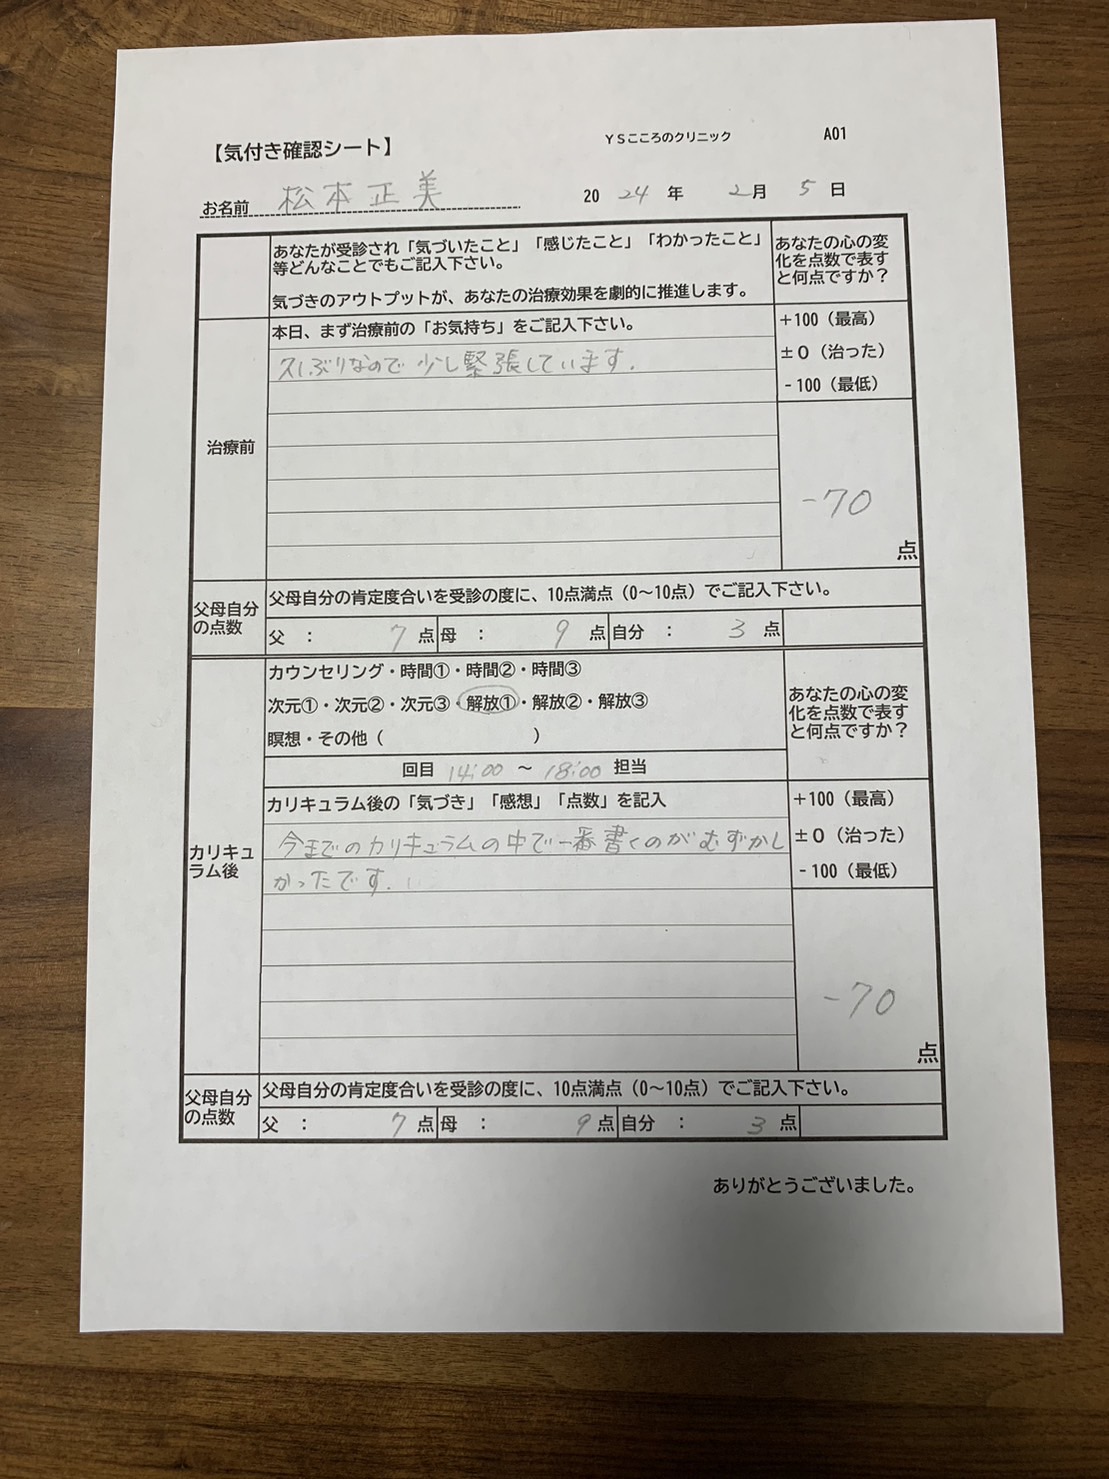 【気付き確認シート】 YSこころのクリニック A01
お名前 松本正美 2024年 2月 5日
あなたが受診され「気づいたこと」「感じたこと」「わかったこと」
等どんなことでもご記入下さい。
気づきのアウトプットが、あなたの治療効果を劇的に推進します。
あなたの心の変
化を点数で表す
と何点ですか？
治療前
本日、まず治療前の「お気持ち」をご記入下さい。
久しぶりなので少し緊張しています.
+100（最高）
±0（治った）
-100（最低）
-70
点
父母自分
の点数
父母自分の肯定度合いを受診の度に、10点満点（0〜10点）でご記入下さい。
父 ： 7 点 母 ： 9 点 自分 ： 3 点
カリキュ
ラム後
カウンセリング・時間①・時間②・時間③
次元①・次元②・次元③・解放①・解放②・解放③
瞑想・その他（ ）
回目 14:00 〜 18:00 担当
あなたの心の変
化を点数で表す
と何点ですか？
カリキュラム後の「気づき」「感想」「点数」を記入
今までのカリキュラムの中で一番書くのがむずかし
かったです.
+100（最高）
±0（治った）
-100（最低）
-70
点
父母自分
の点数
父母自分の肯定度合いを受診の度に、10点満点（0〜10点）でご記入下さい。
父 ： 7 点 母 ： 9 点 自分 ： 3 点
ありがとうございました。